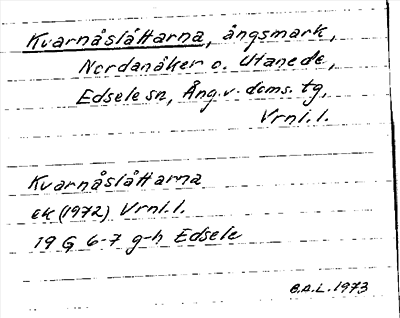 Kvarnåslåttarna, ängsmark,
Nordanåker o. Utanede,
Edsele sn, Ång. v. doms. tg,
Vrnl. l.
Kvarnåslåttarna
ek (1972) Vrnl. l.
19 G 6-7 g-h Edsele
B.A.L. 1973